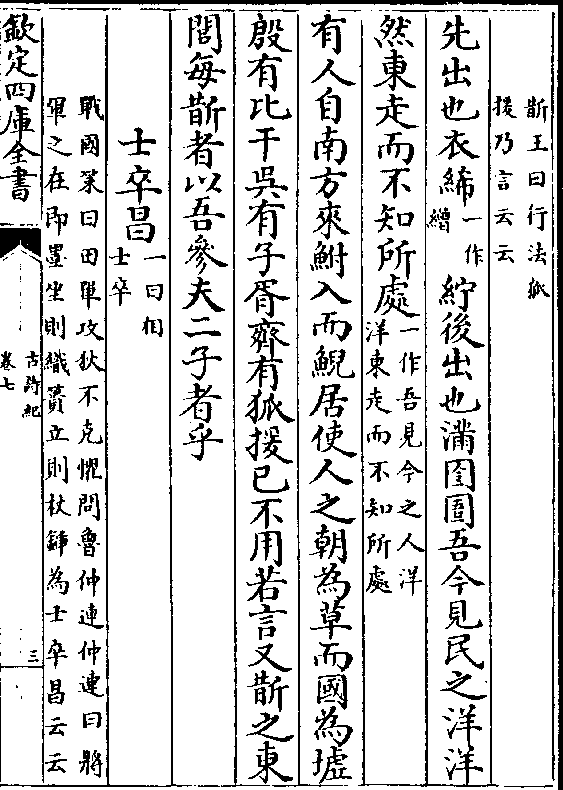 斮王曰行法狐
援乃言云云
先出也衣絺一作繒紵後出也滿囹圄吾今見民之洋洋
然東走而不知所處一作吾見今之人洋洋東走而不知所處
有人自南方來鮒入而鯢居使人之朝為草而國為墟
殷有比干吳有子胥齊有狐援已不用若言又斮之東
閭每斮者以吾參夫二子者乎
士卒昌一曰相士卒
戰國策曰田單攻狄不克懼問魯仲連仲連曰將
軍之在即墨坐則織蕢立則杖鍤為士卒昌云云
欽定四庫全書
古詩紀
卷七
三